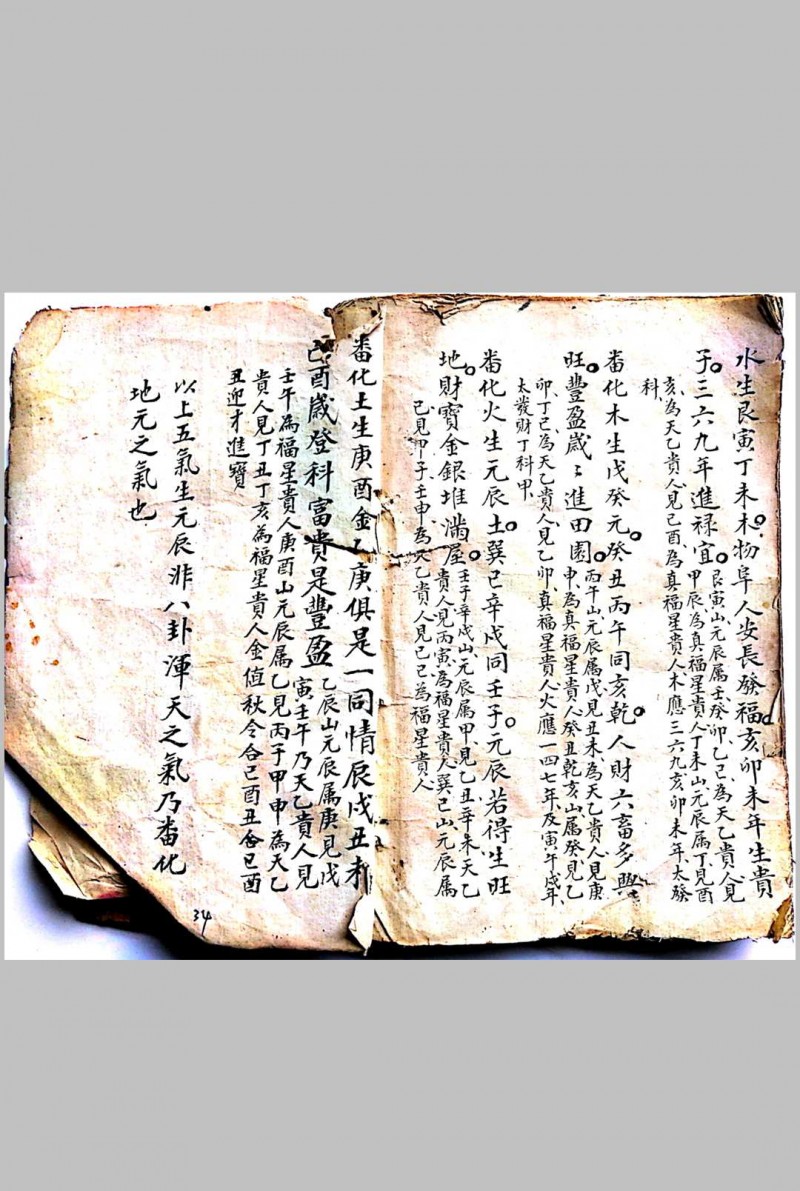 水生艮寅丁未木物阜人安長發福亥卯未年生貴
子三六九年進禄宜艮寅山元辰属壬癸卯乙已為天乙貴人見
甲辰為真福星貴人丁未山元辰属丁見酉
亥為天乙貴人見己酉為真福星貴人木應三六九亥卯未年太發
科
畨化木生戊癸元癸丑丙午同亥乾人財六畜多興
旺豐盈歲々進田園丙午山元辰属戊見丑未為天乙貴人見庚
申為真福星貴人癸丑乾亥山属癸見乙
卯丁已為天乙貴人見乙卯真福星貴人火應一四七年及寅午戌年
太發財丁科甲
畨化火生元辰土巽已辛戌同壬子元辰若得生旺
地財寶金銀堆滿屋壬子辛戌山元辰属甲見乙丑辛未天乙
貴人見丙寅為福星貴人巽已山元辰属
己見甲子壬申為天乙貴人見己已為福星貴人
畨化土生庚酉金乙庚俱是一同情辰戌丑未
已酉歲登科富貴是豐盈乙辰山元辰属庚見戊
寅壬午乃天乙貴人見
壬午為福星貴人庚酉山元辰属乙見丙子甲申為天乙
貴人見丁丑丁亥為福星貴人金值秋令合已酉丑合已酉
丑迎才進寶
以上五氣生元辰非八卦渾天之氣乃畨化
地元之氣也
34